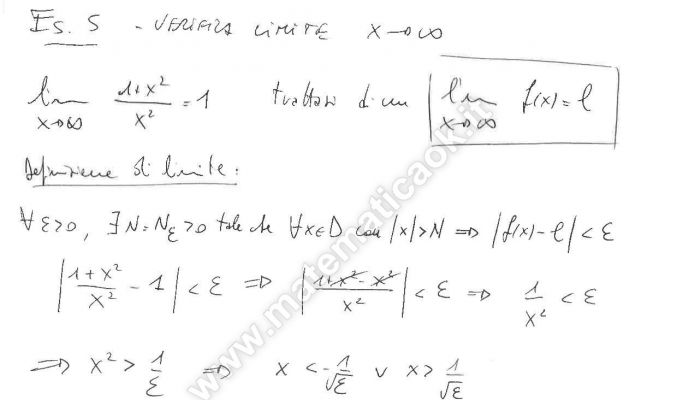 Es. 5 - VERIFICA LIMITE x→∞
lim x→∞ (1+x²)/x² = 1 trattasi di un lim x→∞ f(x) = l
Definizione di limite:
∀ε>0, ∃N=Nε>0 tale che ∀x∈D con |x|>N ⇒ |f(x)-l|<ε
|(1+x²)/x² - 1| < ε ⇒ |(1+x²-x²)/x²| < ε ⇒ 1/x² < ε
⇒ x² > 1/ε ⇒ x < -1/√ε ∨ x > 1/√ε
www.matematicaok.it